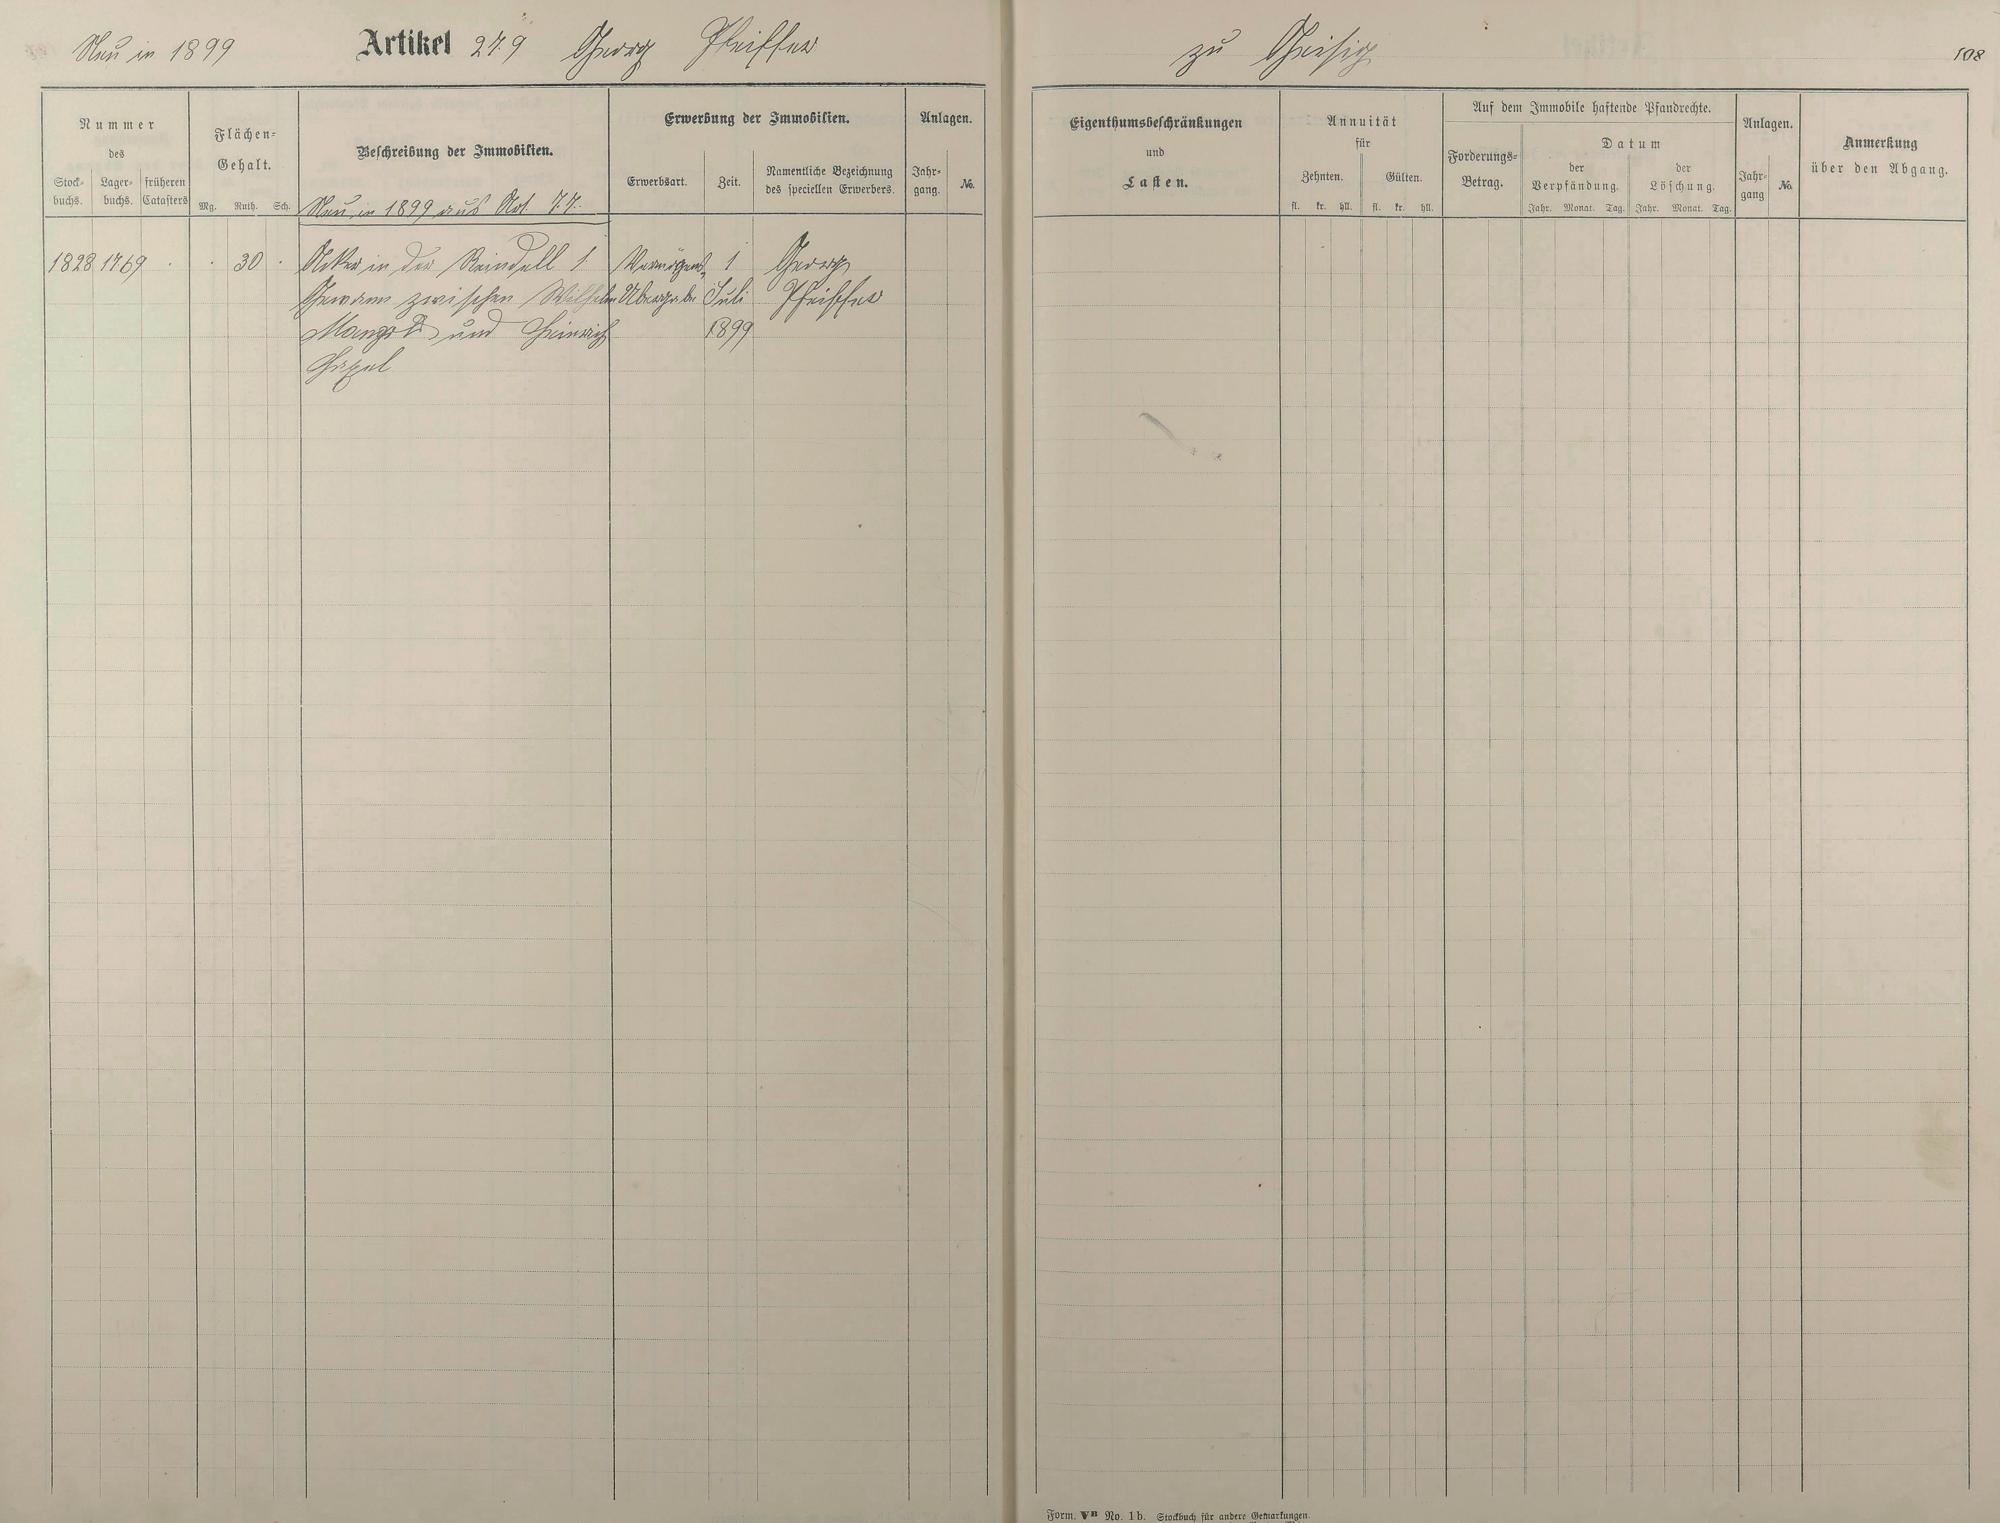 Neu in 1899 Artikel 279 Georg Pfeiffer zu Geisig 108
Nummer
des
Stock- buchs. Lager- buchs. früheren Catasters
Flächen-
Gehalt.
Mg. Ruth. Sch.
Beschreibung der Immobilien.
Neu in 1899 aus Art. 77.
Erwerbung der Immobilien.
Erwerbsart. Zeit. Namentliche Bezeichnung
des speciellen Erwerbers.
Anlagen.
Jahr-
gang. No.
Eigenthumsbeschränkungen
und
Lasten.
Annuität
für
Zehnten. Gülten.
fl. kr. hll. fl. kr. hll.
Auf dem Immobile haftende Pfandrechte.
Forderungs-
Betrag.
Datum
der
Verpfändung.
der
Löschung.
Jahr. Monat. Tag. Jahr. Monat. Tag.
Anlagen.
Jahr-
gang No.
Anmerkung
über den Abgang.
1828 1769 . . 30 . Acker in der Reindell 1. Vermögens- 1 Georg
Gewann zwischen Wilhelm Übergabe Juli Pfeiffer
und Heinrich 1899
Form. VB No. 1b. Stockbuch für andere Gemarkungen.